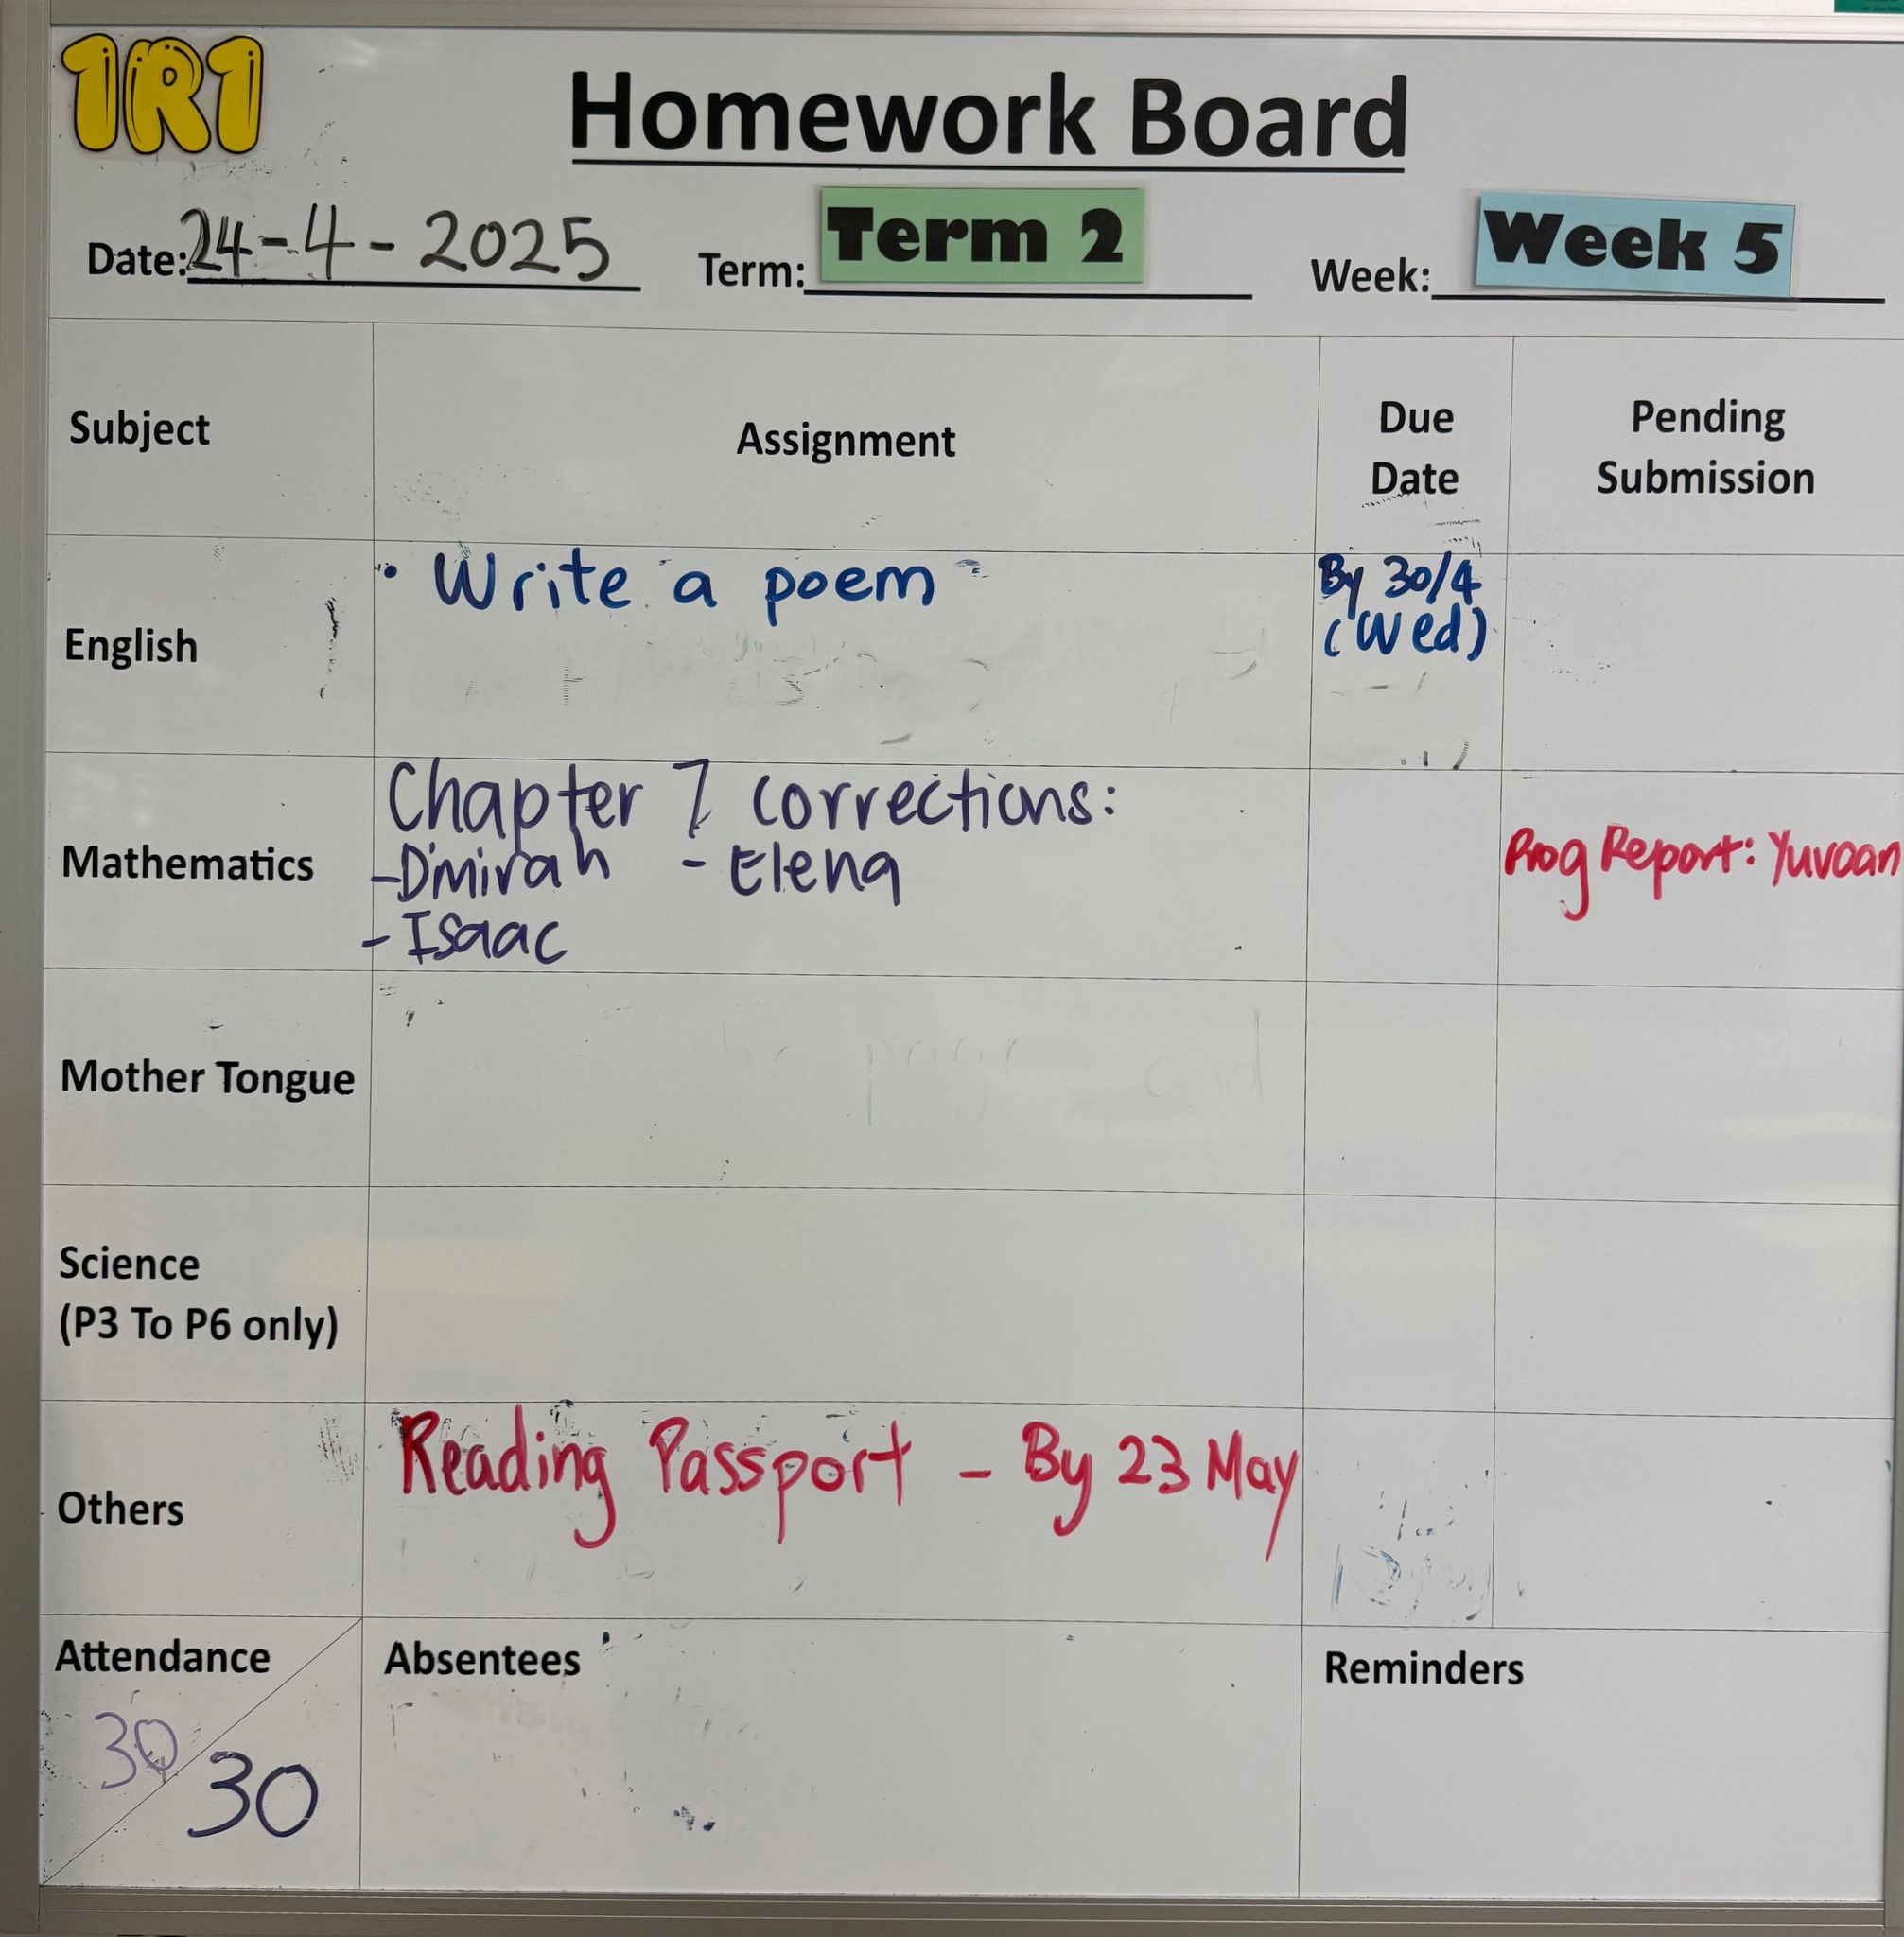 1R1
Homework Board
Date: 24-4-2025 Term: Term 2 Week: Week 5
Subject Assignment Due Date Pending Submission
English
• Write a poem
By 30/4
(Wed)
Mathematics
Chapter 7 corrections:
-D'mirah - Elena
- Isaac
Prog Report: Yuvaan
Mother Tongue
Science
(P3 To P6 only)
Others
Reading Passport - By 23 May
Attendance
30
30
Absentees
Reminders